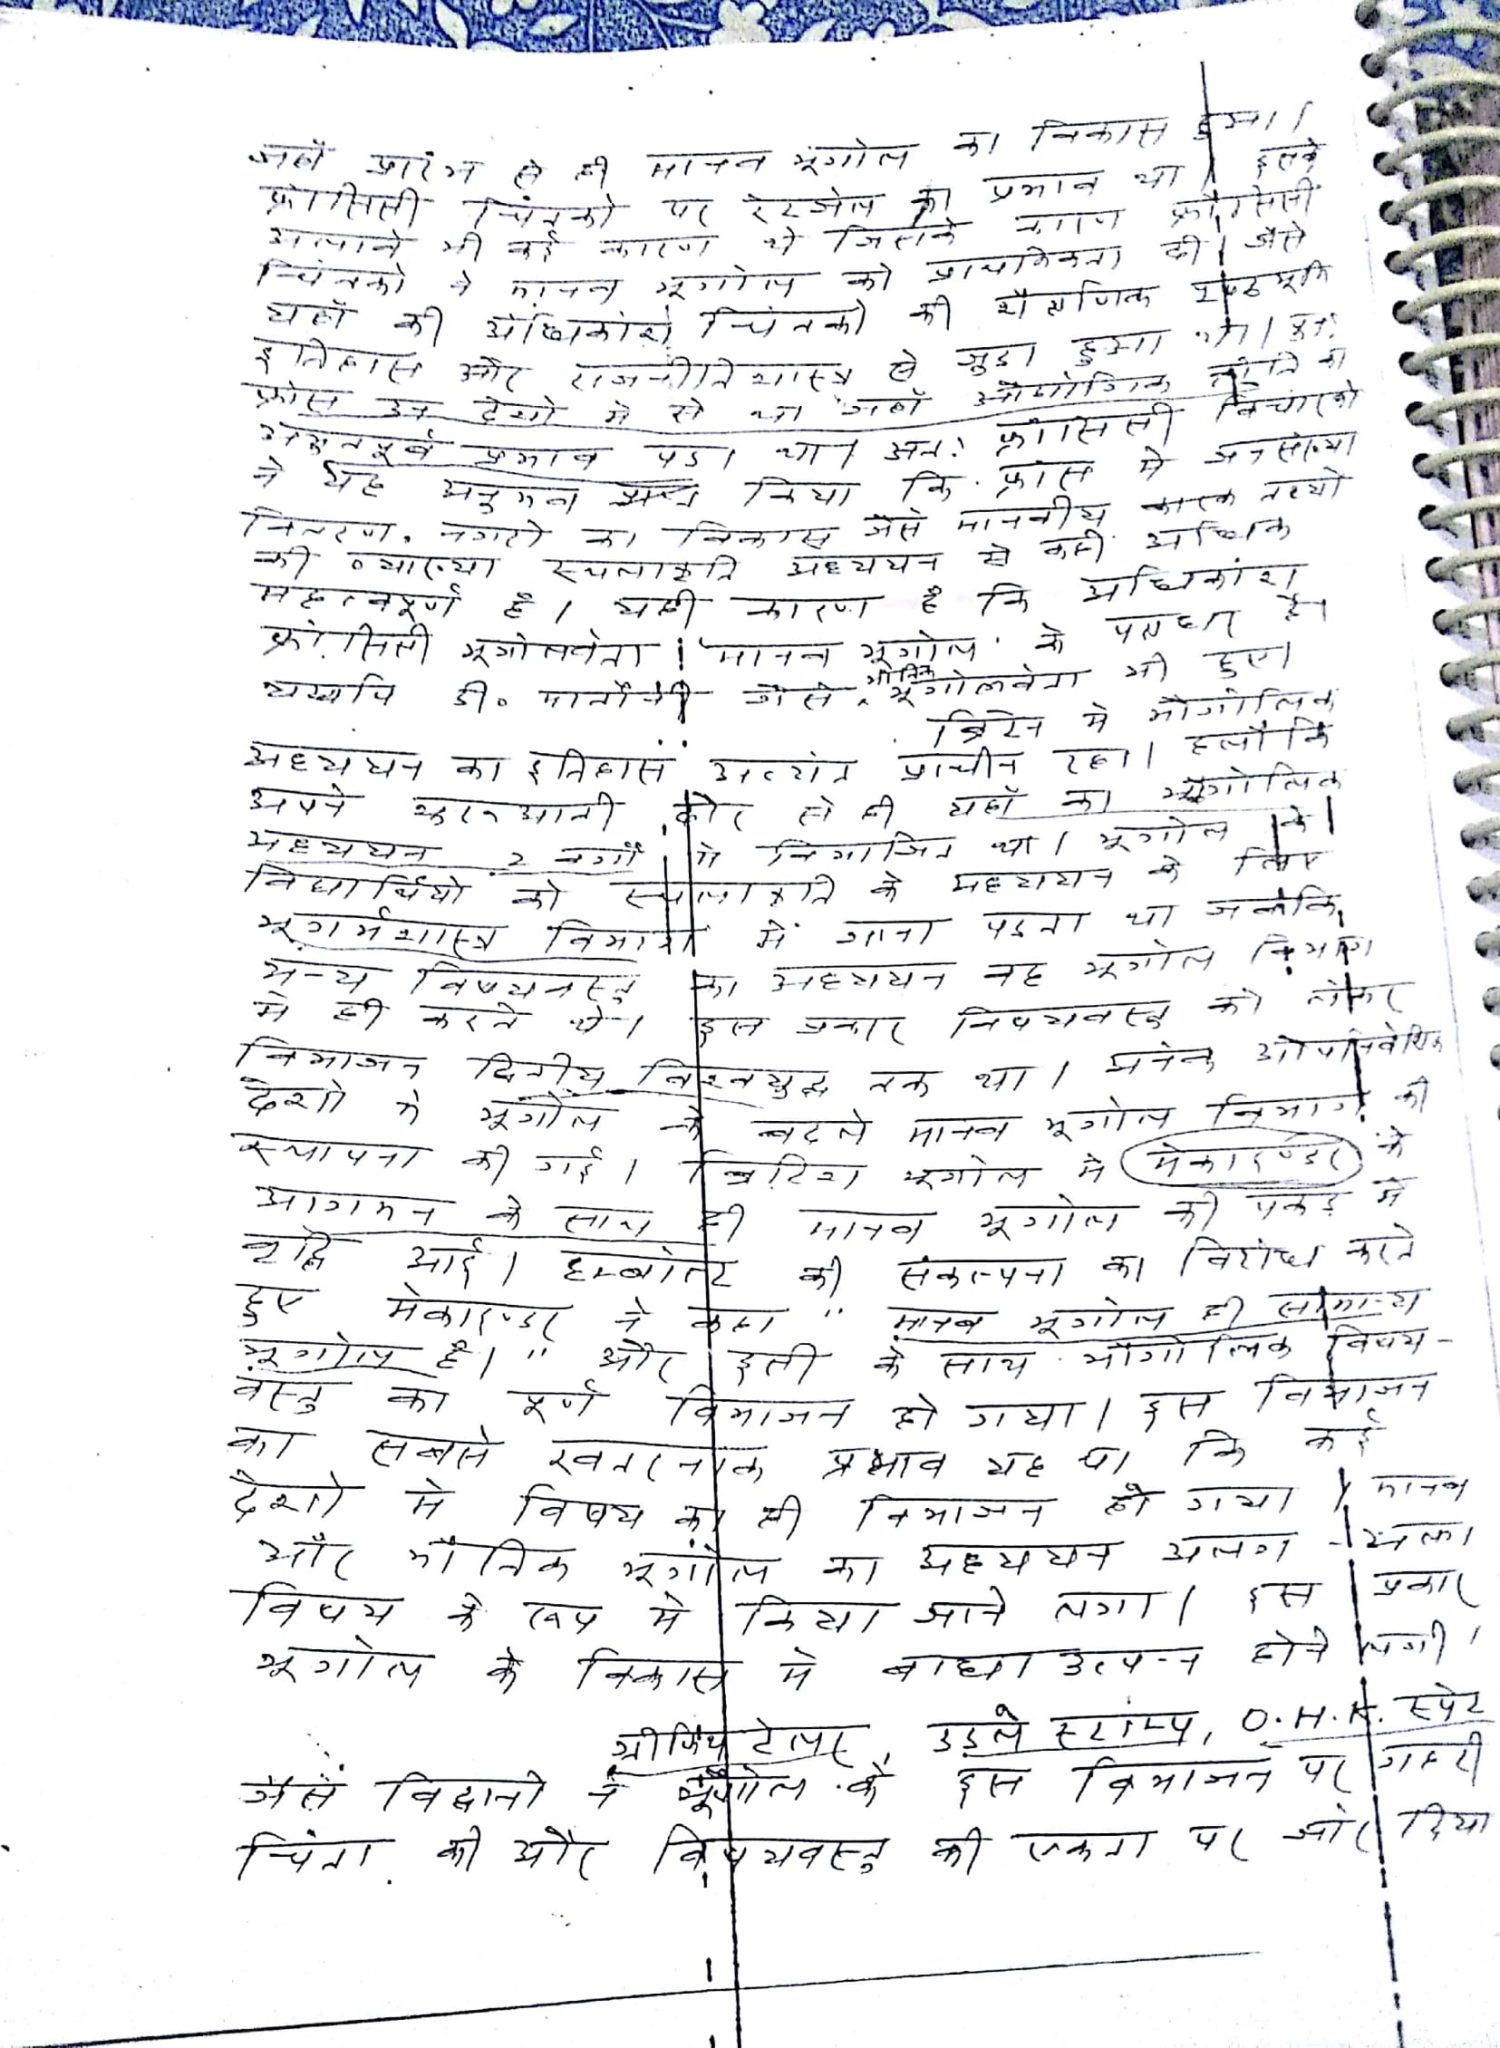 जहाँ प्रारंभ से ही मानव भूगोल का विकास हुआ।
फ्रांसिसी चिंतको पर रेटजेल का प्रभाव था। इसके
अलावे भी कई कारण थे जिसके कारण फ्रांसिसी
चिंतको ने मानव भूगोल को प्राथमिकता दी। जैसे
यहाँ की अधिकांश चिंतको की शैक्षणिक पृष्ठभूमि
इतिहास और राजनीतिशास्त्र से जुडा हुआ था। पुनः
फ्रांस उन देशो मे से था जहाँ औद्योगिक क्रांति का
अभूतपूर्व प्रभाव पडा था। अतः फ्रांसिसी विचारको
ने यह अनुभव किया कि फ्रांस मे जनसंख्या
वितरण, नगरो का विकास जैसे मानवीय कारक तथ्यो
की व्याख्या स्थलाकृति अध्ययन से कही अधिक
महत्वपूर्ण है। यही कारण है कि अधिकांश
फ्रांसिसी भूगोलवेता 'मानव भूगोल' के पक्षधर है।
यद्यपि डी० मार्तोनी जैसे भौतिक भूगोलवेता भी हुए।
ब्रिटेन मे भौगोलिक
अध्ययन का इतिहास अत्यंत प्राचीन रहा। हलाँकि
अपने शुरुआती दौर से ही यहाँ का भौगोलिक
अध्ययन २ वर्गों मे विभाजित था। भूगोल के
विद्यार्थियो को स्थलाकृति के अध्ययन के लिए
भूगर्भशास्त्र विभाग में जाना पडता था जबकि
अन्य विषयवस्तु का अध्ययन वह भूगोल विभाग
मे ही करते थे। इस प्रकार विषयवस्तु को लेकर
विभाजन द्वितीय विश्वयुद्ध तक था। अनेक औपनिवेशिक
देशो मे भूगोल के बदले मानव भूगोल विभाग की
स्थापना की गई। ब्रिटिश भूगोल मे मेकाइण्डर के
आगमन के साथ ही मानव भूगोल की पकड़ मे
वृद्धि आई। हम्बोल्ट की संकल्पना का विरोध करते
हुए मेकाइण्डर ने कहा "मानव भूगोल ही सामान्य
भूगोल है।" और इसी के साथ भौगोलिक विषय-
वस्तु का पूर्ण विभाजन हो गया। इस विभाजन
का सबसे खतरनाक प्रभाव यह था कि कई
देशो मे विषय का ही विभाजन हो गया। मानव
और भौतिक भूगोल का अध्ययन अलग - अलग
विषय के रूप मे किया जाने लगा। इस प्रकार
भूगोल के विकास मे बाधा उत्पन्न होने लगी।
ग्रीफिथ टेलर, डडले स्टाम्प, O.H.K. स्पेट
जैसे विद्वानो ने भूगोल के इस विभाजन पर गहरी
चिंता की और विषयवस्तु की एकता पर जोर दिया